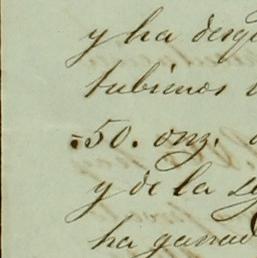 y ha desp
tubimos
=50. onz.
y de la se
ha ganad